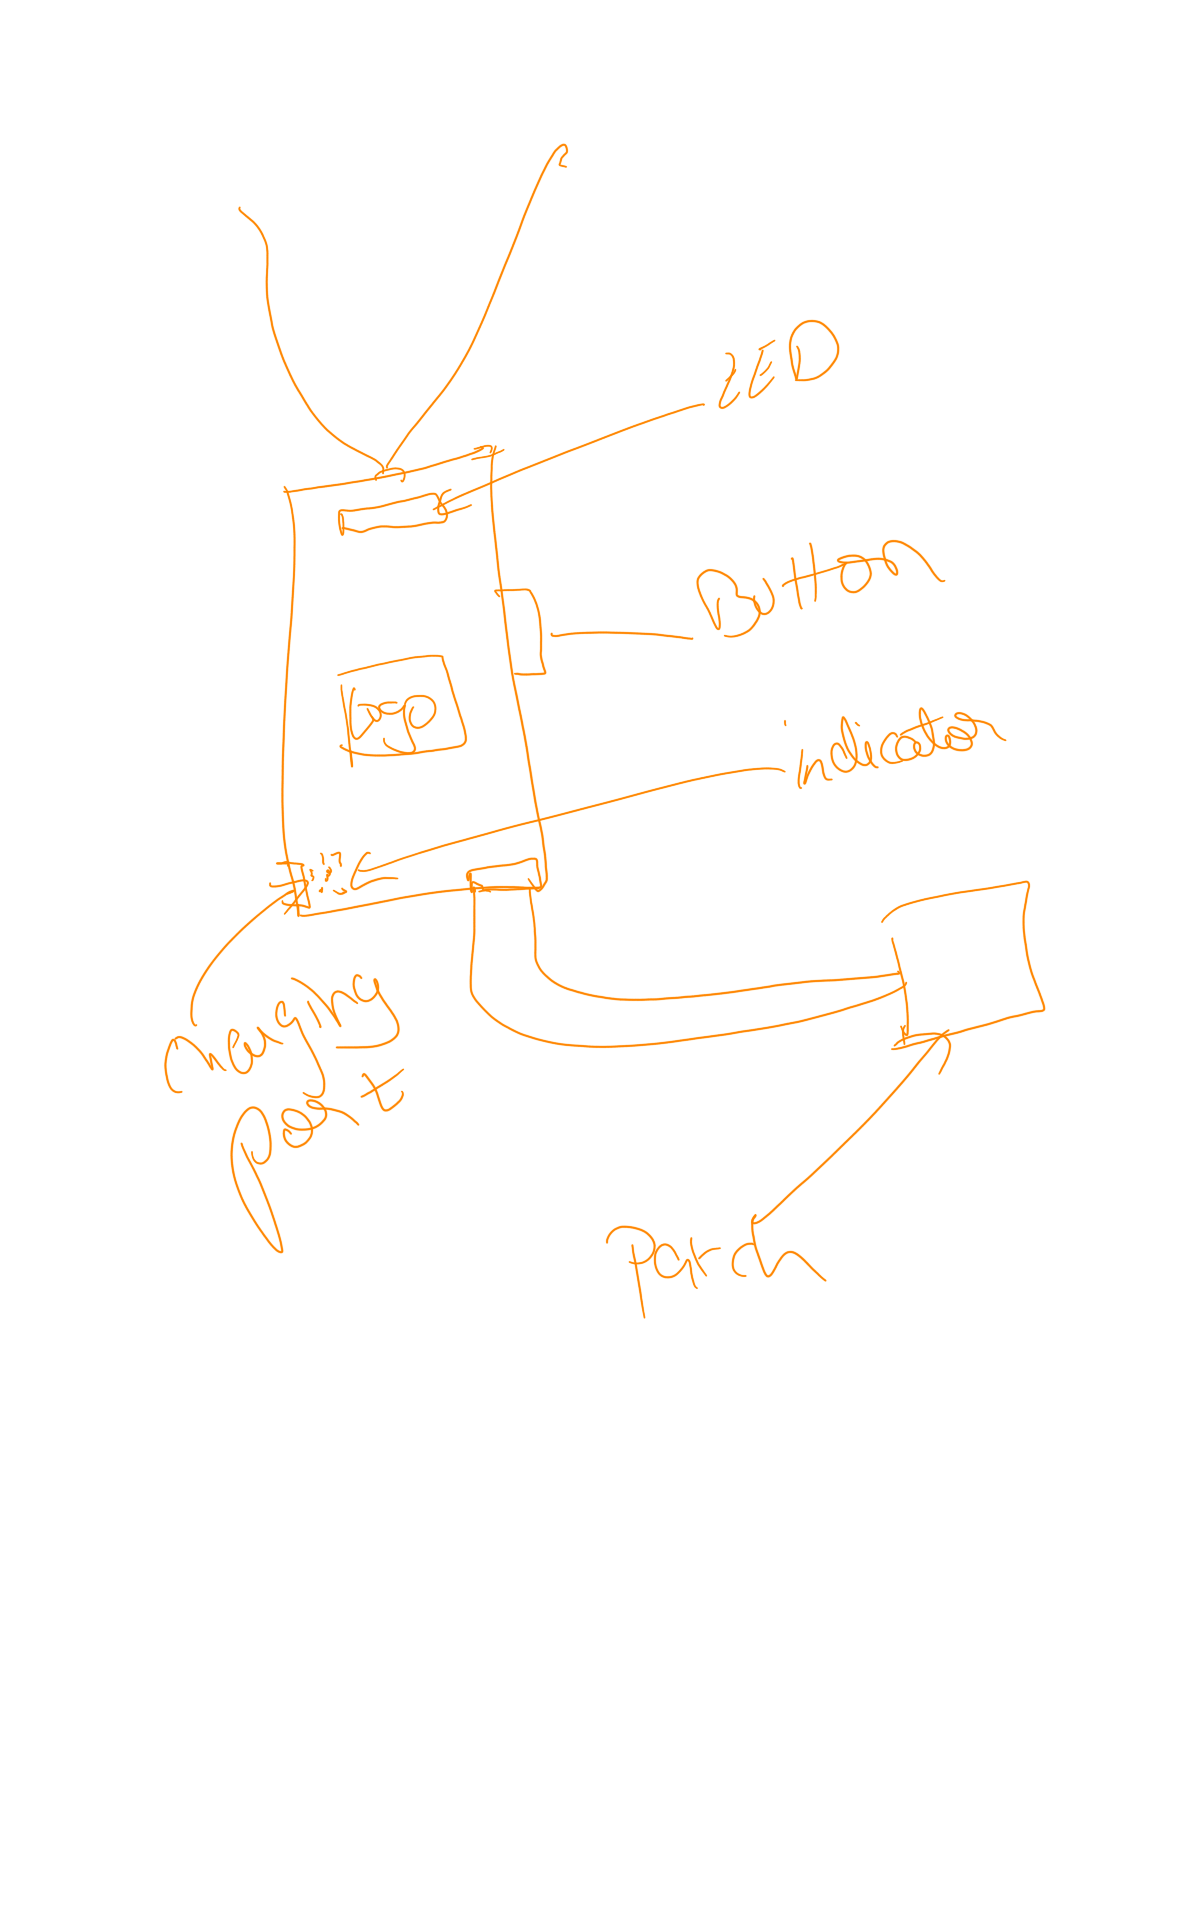 LED
Button
Logo
indicator
charging
port
Patch